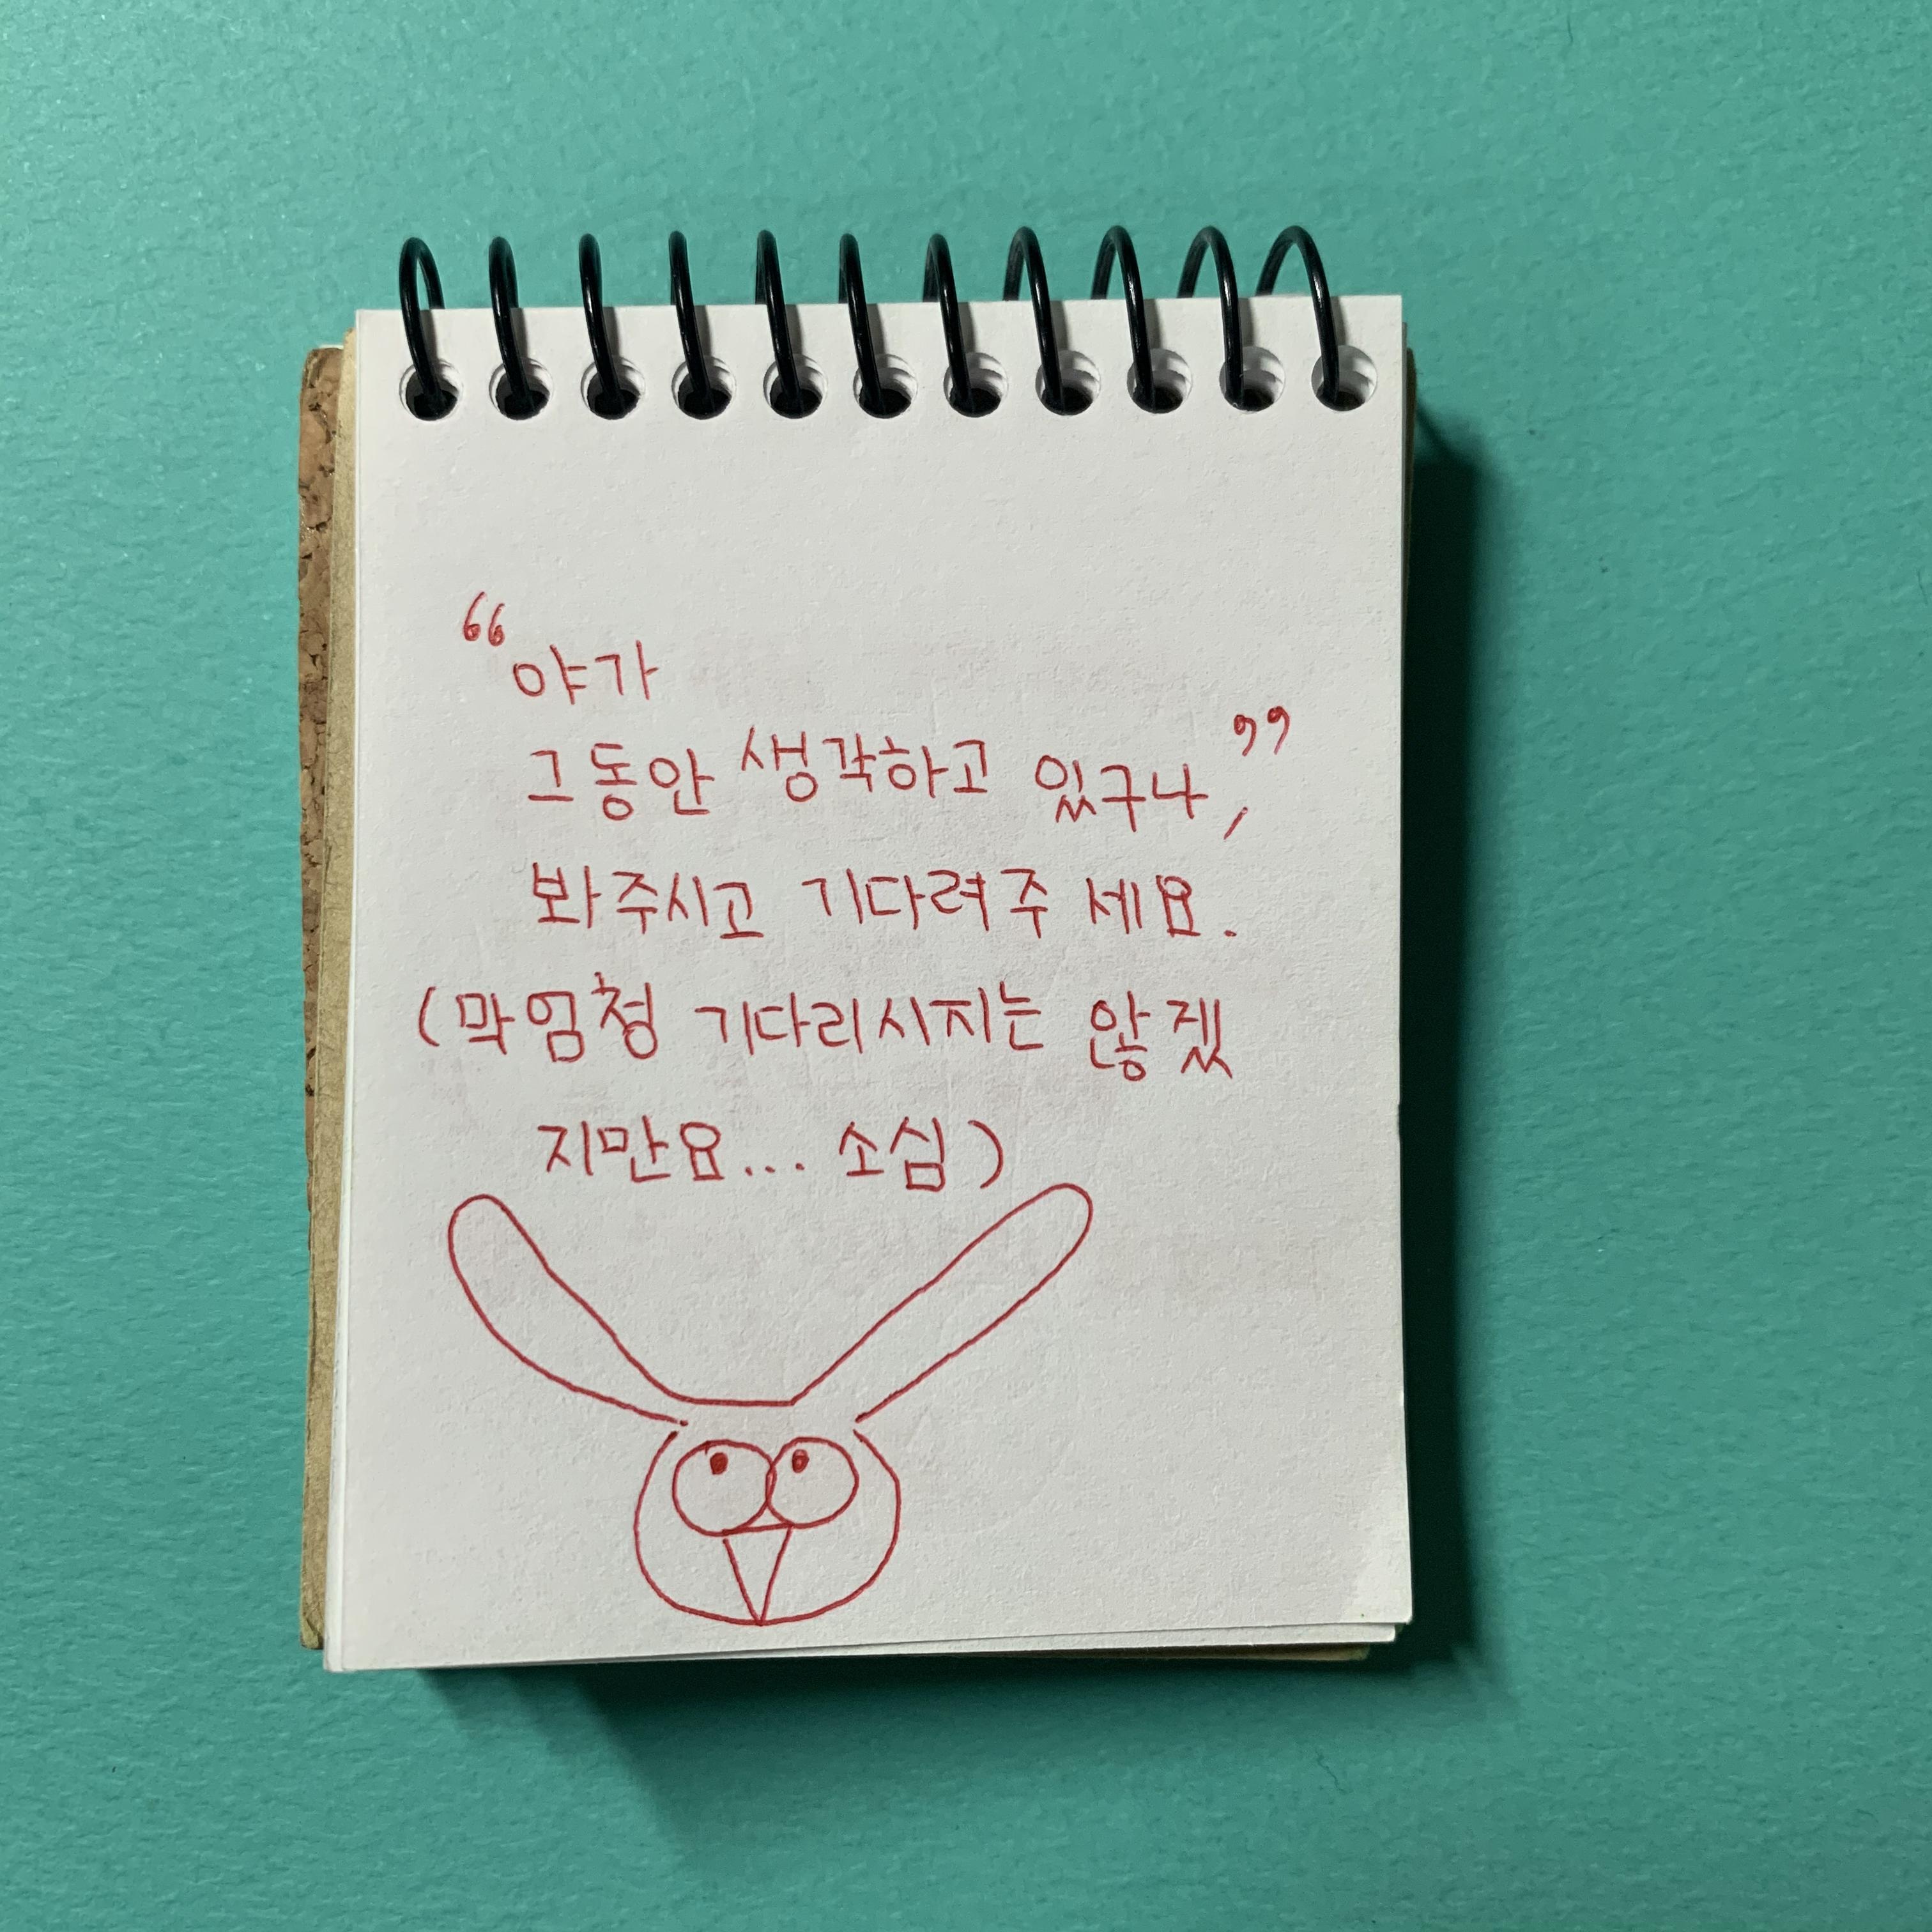 “야가
그동안 생각하고 있구나,”
봐주시고 기다려주세요.
(막엄청 기다리시지는 않겠
지만요... 소심)